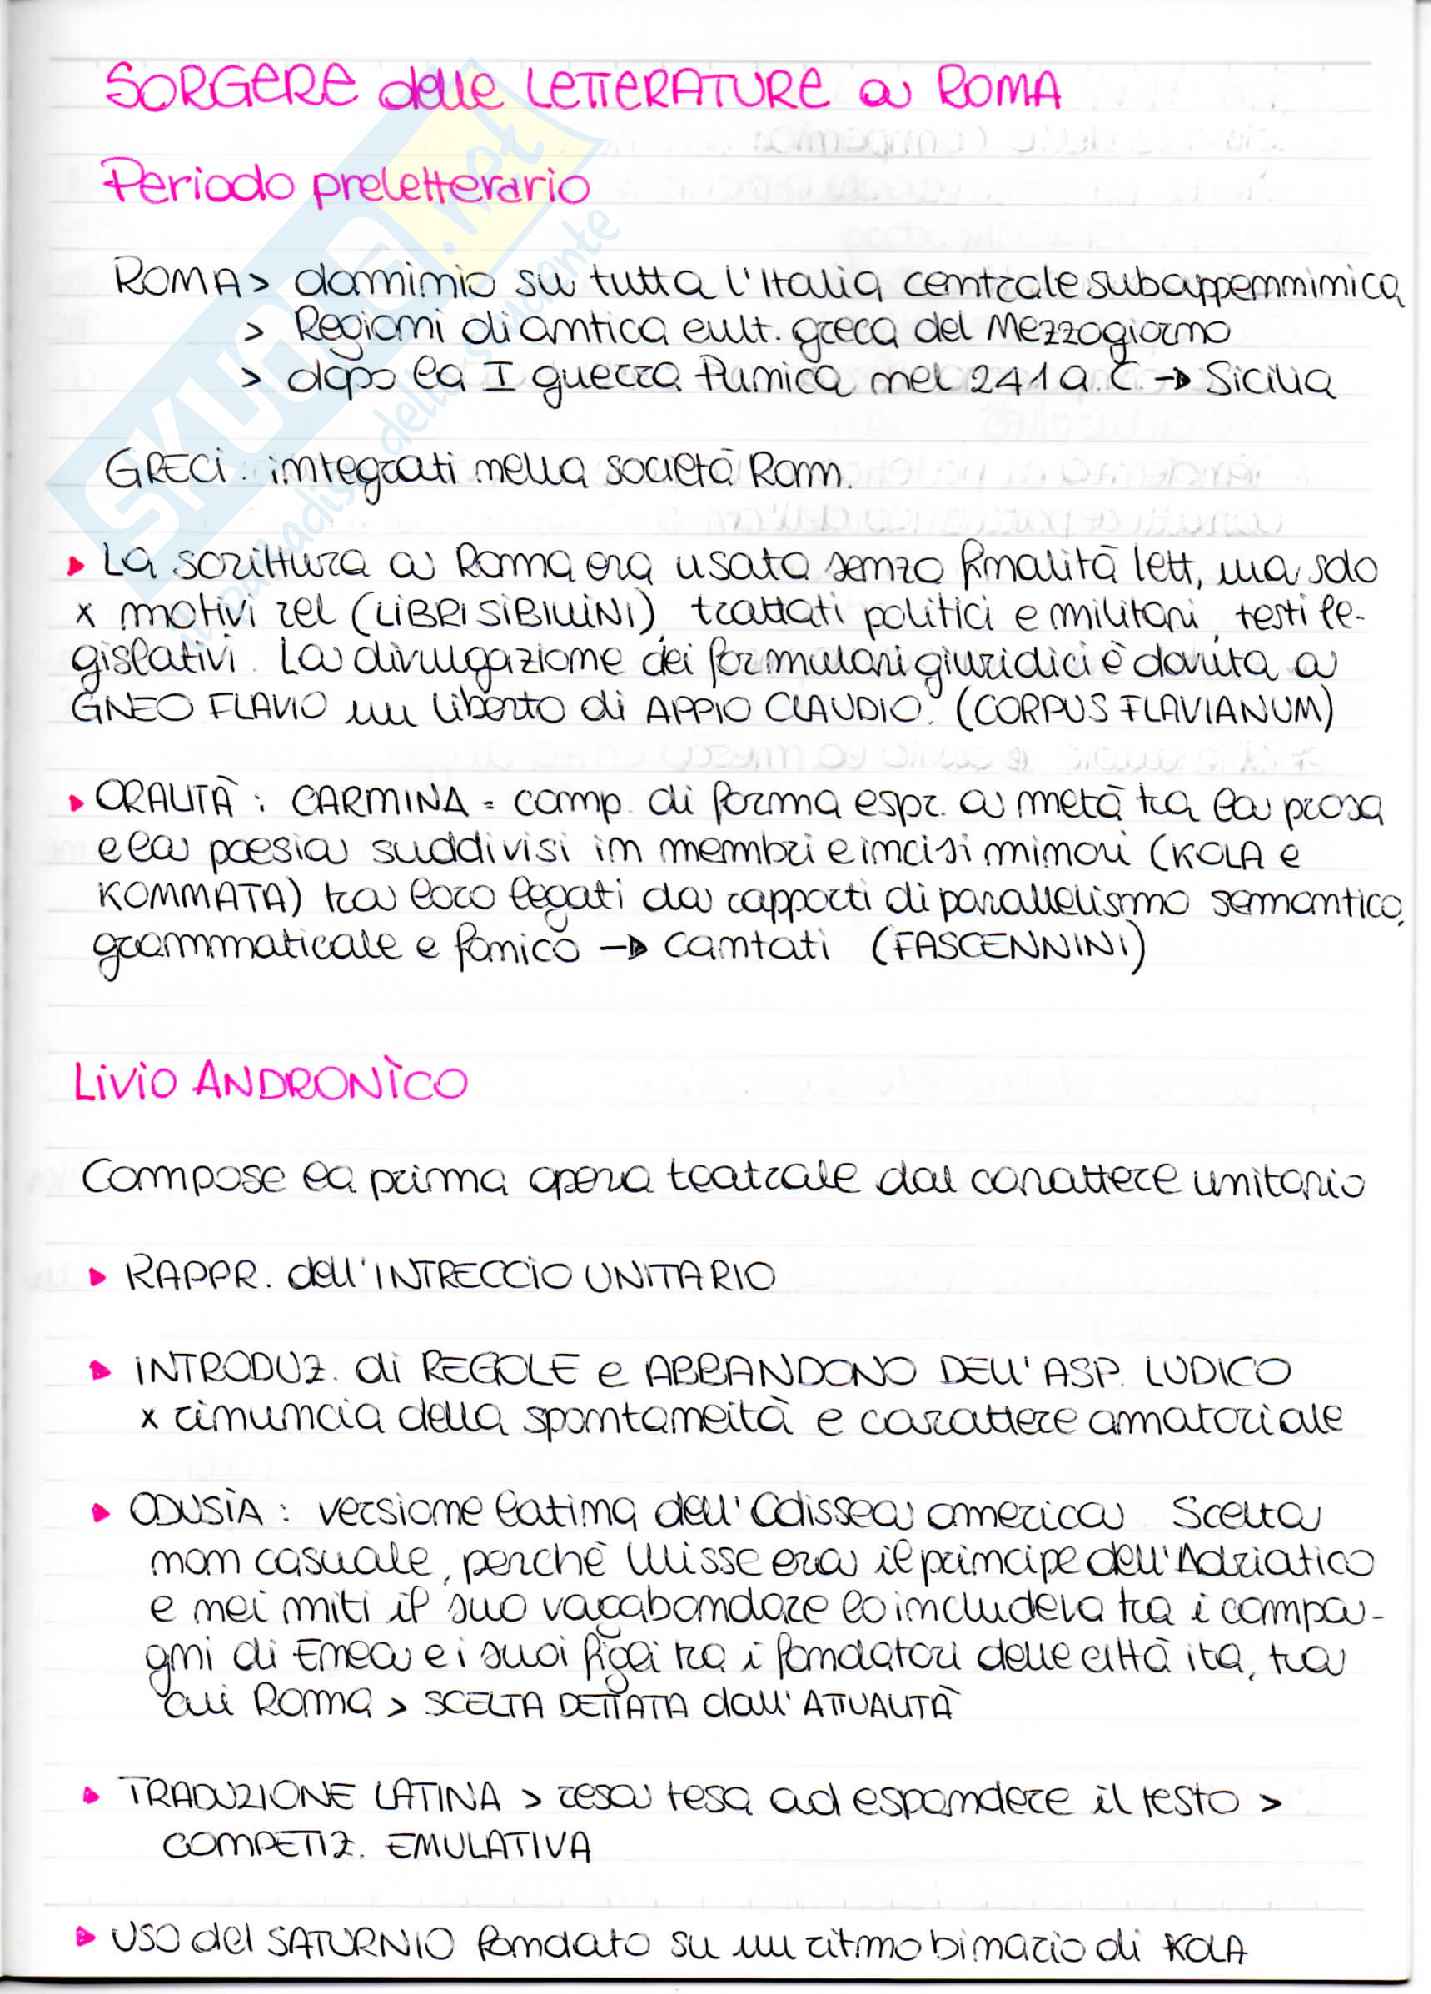 SORGERE delle LETTERATURE a ROMA
Periodo preletterario
ROMA > dominio su tutta l'Italia centrale subappenninica
> Regioni di antica cult. greca del Mezzogiorno
> dopo la I guerra Punica nel 241 a.C. → Sicilia
GRECI: integrati nella società Rom.
▸ La scrittura a Roma era usata senza finalità lett, ma solo
x motivi rel (LIBRI SIBILLINI), trattati politici e militari, testi le-
gislativi. La divulgazione dei formulari giuridici è dovuta a
GNEO FLAVIO un liberto di APPIO CLAUDIO. (CORPUS FLAVIANUM)
▸ ORALITÀ: CARMINA = comp. di forma espr. a metà tra la prosa
e la poesia suddivisi in membri e incisi minori (KOLA e
KOMMATA) tra loro legati da rapporti di parallelismo semantico,
grammaticale e fonico → cantati (FASCENNINI)
LIVIO ANDRONÌCO
Compose la prima opera teatrale dal carattere unitario
▸ RAPPR. dell'INTRECCIO UNITARIO
▸ INTRODUZ. di REGOLE e ABBANDONO DELL'ASP. LUDICO
x rinuncia della spontaneità e carattere amatoriale
▸ ODUSÌA: versione latina dell'Odissea omerica. Scelta
non casuale, perché Ulisse era il principe dell'Adriatico
e nei miti il suo vagabondare lo includeva tra i compa-
gni di Enea e i suoi figli tra i fondatori delle città ita, tra
cui Roma > SCELTA DETTATA dall'ATTUALITÀ
▸ TRADUZIONE LATINA > resa tesa ad espandere il testo >
COMPETIZ. EMULATIVA
▸ USO del SATURNIO fondato su un ritmo binario di KOLA
SKUOLA.net
il paradiso dello studente